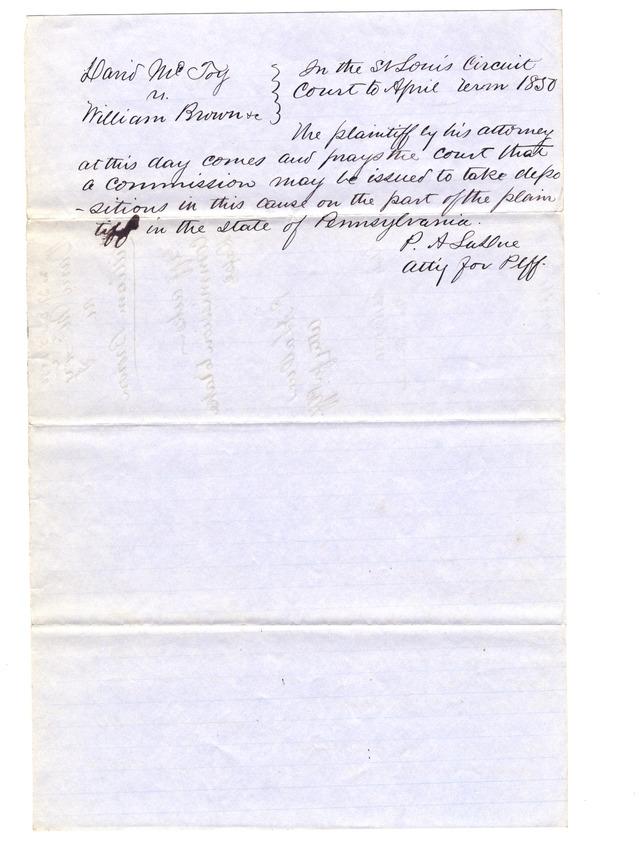 David McFoy
vs.
William Brown &c
In the St Louis Circuit
Court to April Term 1850
The plaintiff by his attorney
at this day comes and prays the court that
a commission may be issued to take depo
-sitions in this cause on the part of the plain
tiff in the state of Pennsylvania.
P. A. LaDue
Atty for Plff.